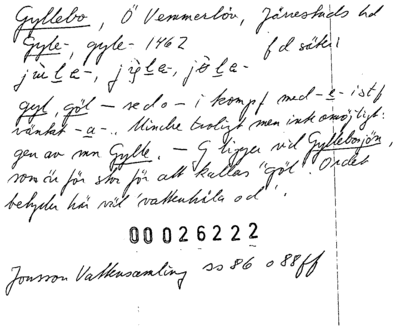 Gyllebo, Ö Vemmerlöv, Järrestads hd
Gyle-, gyle- 1462 fd säteri
gyl, göl - se do - i kompf med -e- istf
väntat -a-. Mindre troligt men inte omöjligt:
gen av mn Gylle. - G ligger vid Gyllebosjön,
som är för stor för att kallas "göl". Ordet
betyder här väl 'vattenhåla od'.
00026222
Jonsson Vattensamling ss 86 o 88ff